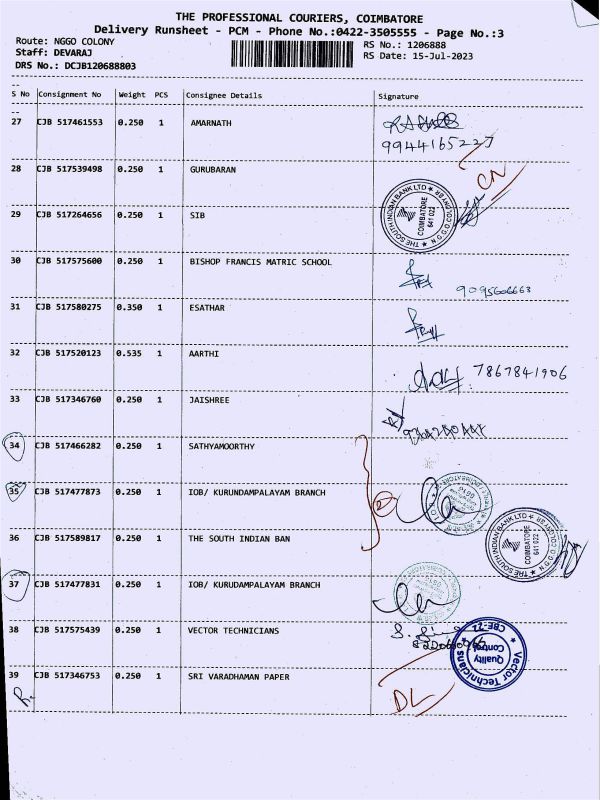 THE PROFESSIONAL COURIERS, COIMBATORE
Delivery Runsheet - PCM - Phone No.:0422-3505555 - Page No.:3
Route: NGGO COLONY
RS No.: 1206888
Staff: DEVARAJ
RS Date: 15-Jul-2023
DRS No.: DCJB120688803
S No Consignment No Weight PCS Consignee Details Signature
27 CJB 517461553 0.250 1 AMARNATH
9944165227
28 CJB 517539498 0.250 1 GURUBARAN
CN
29 CJB 517264656 0.250 1 SIB
THE SOUTH INDIAN BANK LTD
COIMBATORE
641 022
30 CJB 517575600 0.250 1 BISHOP FRANCIS MATRIC SCHOOL
9095606663
31 CJB 517580275 0.350 1 ESATHAR
32 CJB 517520123 0.535 1 AARTHI
7867841906
33 CJB 517346760 0.250 1 JAISHREE
34 CJB 517466282 0.250 1 SATHYAMOORTHY
35 CJB 517477873 0.250 1 IOB/ KURUNDAMPALAYAM BRANCH
36 CJB 517589817 0.250 1 THE SOUTH INDIAN BAN
THE SOUTH INDIAN BANK LTD
COIMBATORE
641 022
37 CJB 517477831 0.250 1 IOB/ KURUDAMPALAYAM BRANCH
38 CJB 517575439 0.250 1 VECTOR TECHNICIANS
Vector Technicians
CBE-22
Quality
Control
39 CJB 517346753 0.250 1 SRI VARADHAMAN PAPER
DL